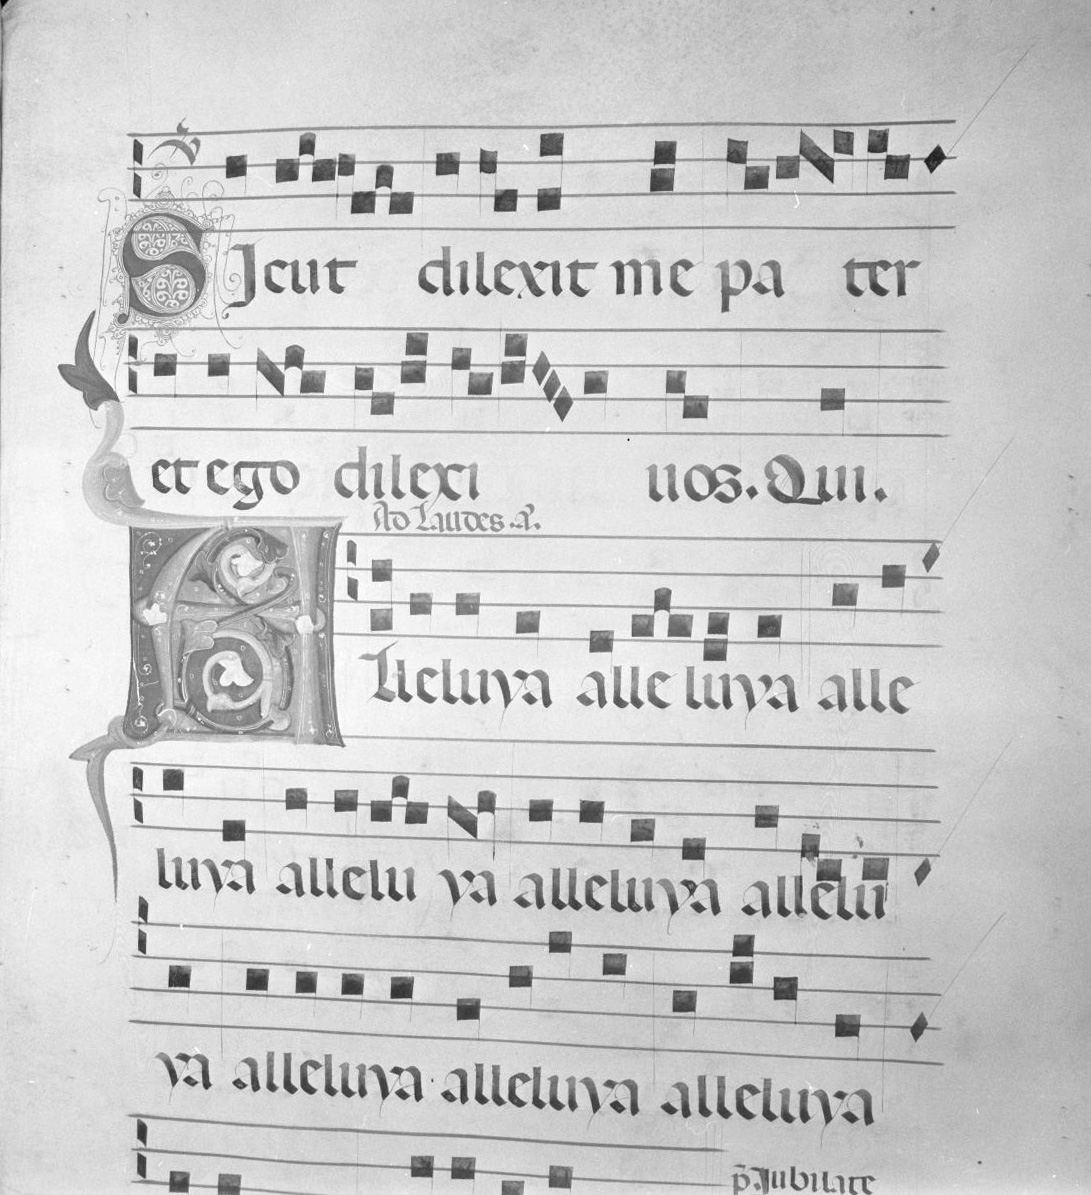 SIcut dilexit me pa ter
et ego dilexi uos. Qui.
Ad Laudes. a.
ALleluya alle luya alle
luya allelu ya alleluya allelu
ya alleluya alleluya alleluya
p̄. Iubilate